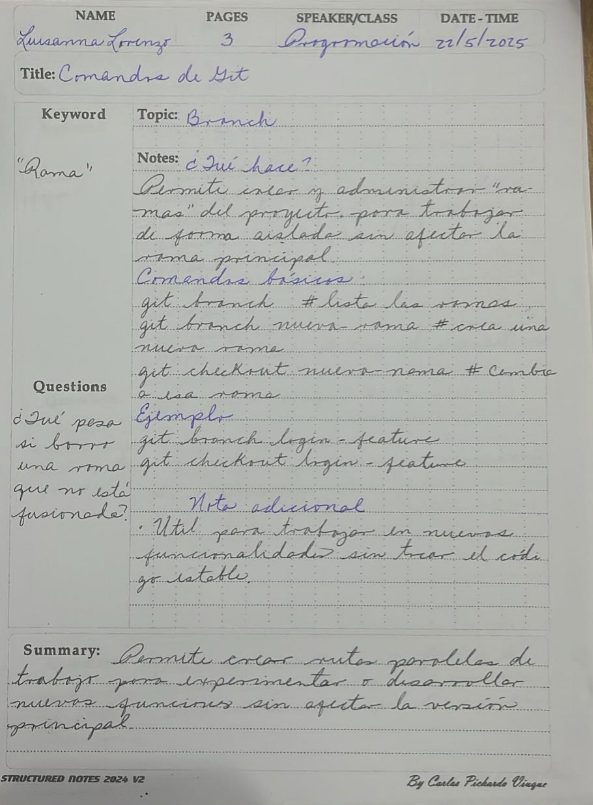 NAME PAGES SPEAKER/CLASS DATE-TIME
Luisanna Lorenzo 3 Programación 22/5/2025
Title: Comandos de Git
Keyword
"Rama"
Topic: Branch
Notes: ¿Qué hace?
Permite crear y administrar "ra-
mas" del proyecto. para trabajar
de forma aislada sin afectar la
rama principal
Comandos básicos.
git branch #lista las ramas
git branch nueva-rama #crea una
nueva rama
git checkout nueva-rama # Cambia
a esa rama
Ejemplo
git branch login-feature
git checkout login-feature
Nota adicional
· Util para trabajar en nuevas
funcionalidades sin tocar el códi
go estable.
Questions
¿Qué pasa
si borro
una rama
que no está
fusionada?
Summary: Permite crear rutas paralelas de
trabajo para experimentar o desarrollar
nuevas funciones sin afectar la versión
principal.
STRUCTURED NOTES 2024 V2
By Carlos Pichardo Vinque